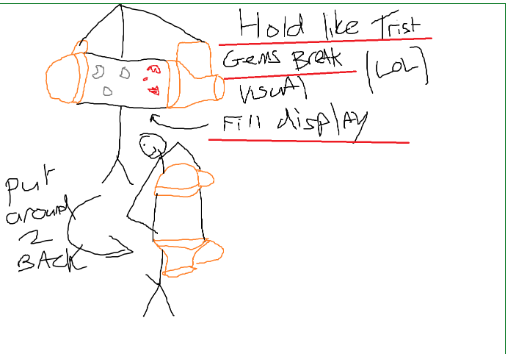 Hold like Trist
Gems Break
(LOL)
Visual
Fill display
Put
around
2
BACK